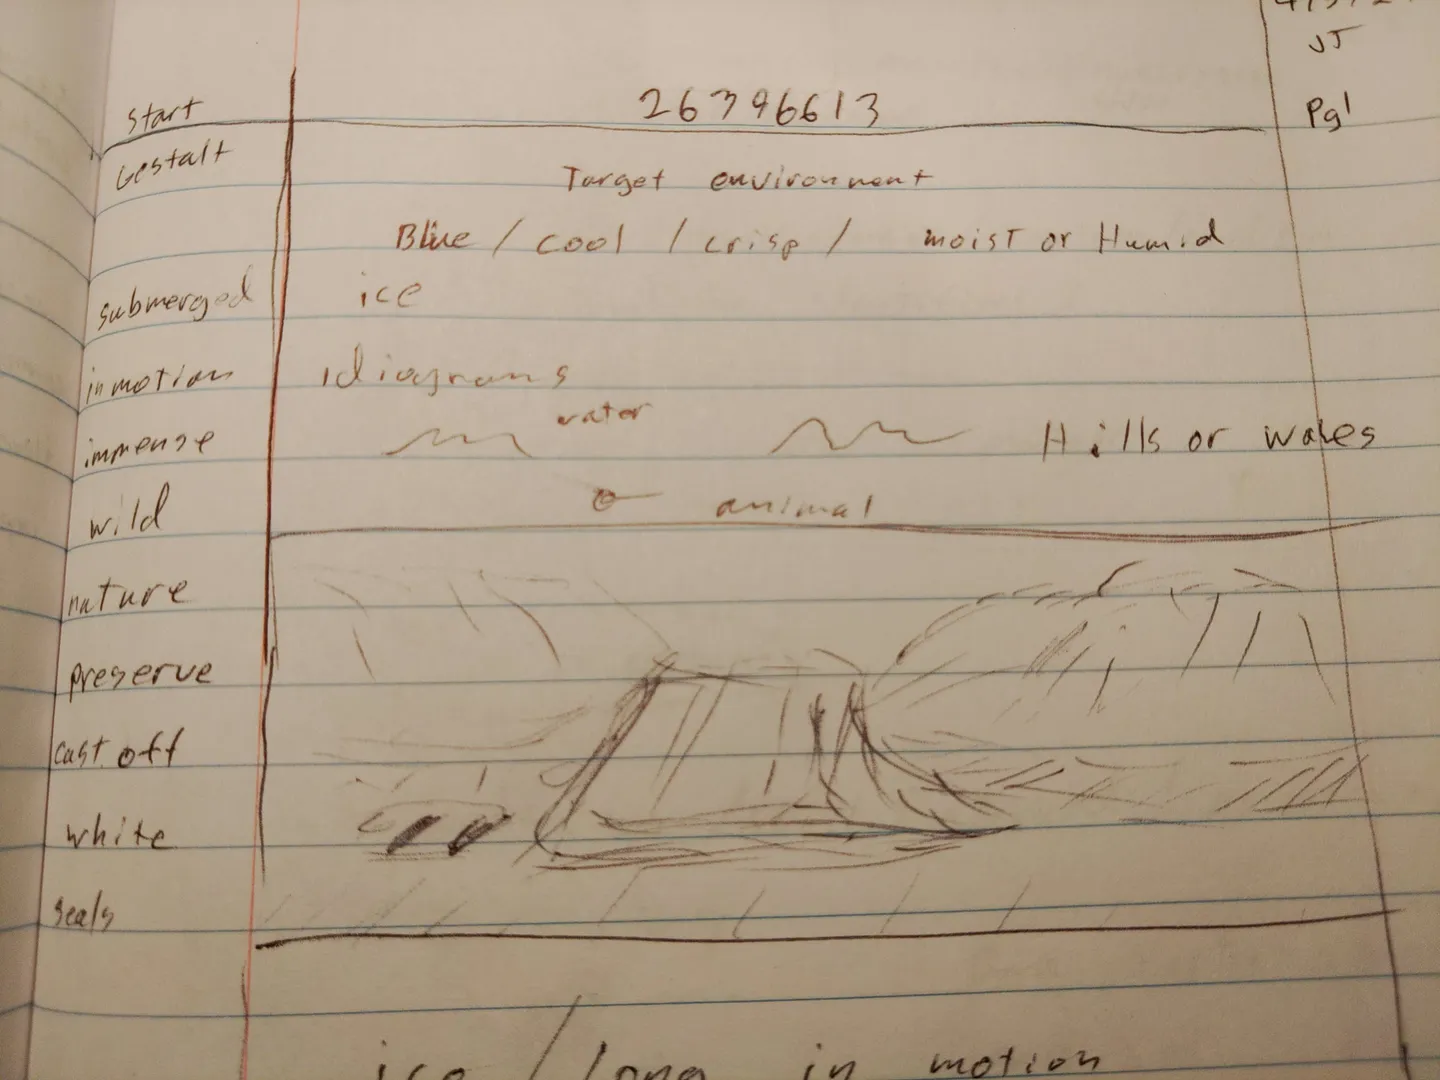 JT
start 26396613 Pg1
Gestalt
Target environment
Blue / cool / crisp / moist or Humid
submerged ice
in motion Idiograms
water
immense Hills or wales
wild animal
nature
preserve
cast off
white
seals
ice / long in motion